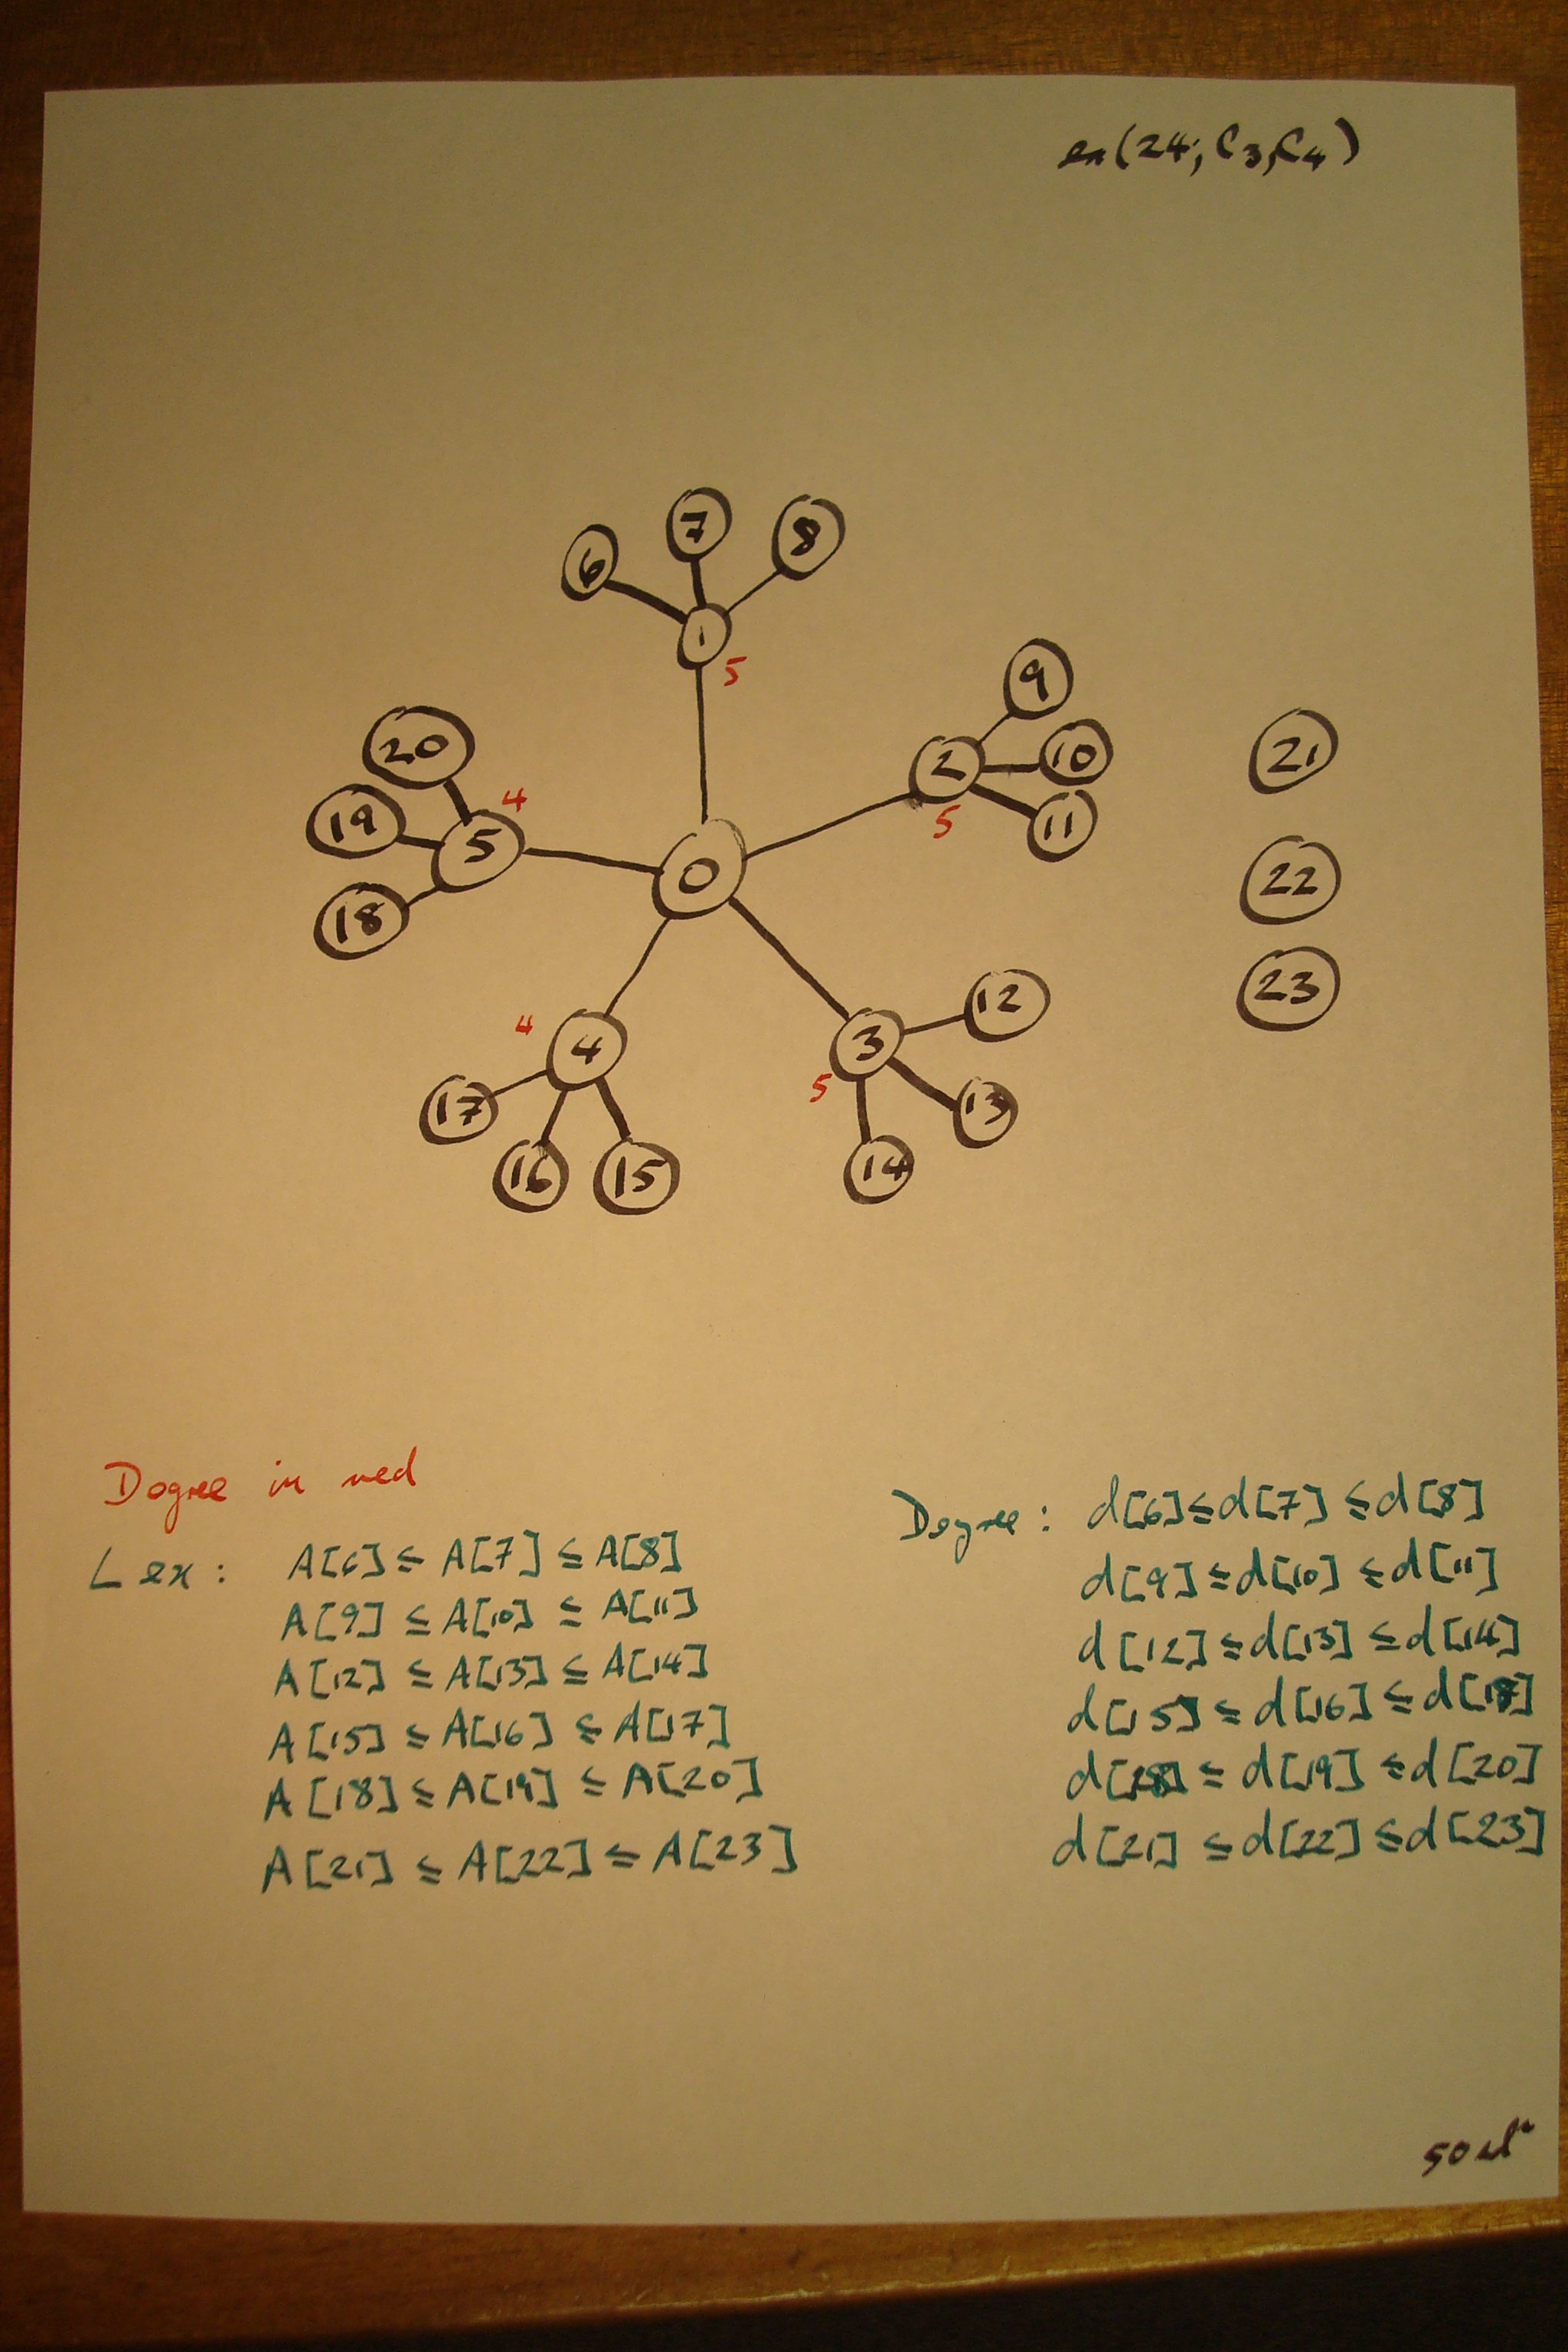 ex(24; C3, C4)
7
8
6
1
5
9
20
2
10
21
4
19
5
11
5
0
22
18
12
23
4
4
3
17
5
13
16
15
14
Degree in red
Lex: A[6] ≤ A[7] ≤ A[8]
A[9] ≤ A[10] ≤ A[11]
A[12] ≤ A[13] ≤ A[14]
A[15] ≤ A[16] ≤ A[17]
A[18] ≤ A[19] ≤ A[20]
A[21] ≤ A[22] ≤ A[23]
Degree: d[6] ≤ d[7] ≤ d[8]
d[9] ≤ d[10] ≤ d[11]
d[12] ≤ d[13] ≤ d[14]
d[15] ≤ d[16] ≤ d[17]
d[18] ≤ d[19] ≤ d[20]
d[21] ≤ d[22] ≤ d[23]